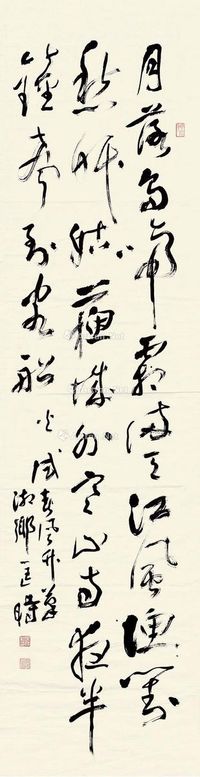 月落烏啼霜滿天江風漁對
愁眠姑蘇城外寒山寺夜半
鐘聲到客船
火
湘鄉匡時